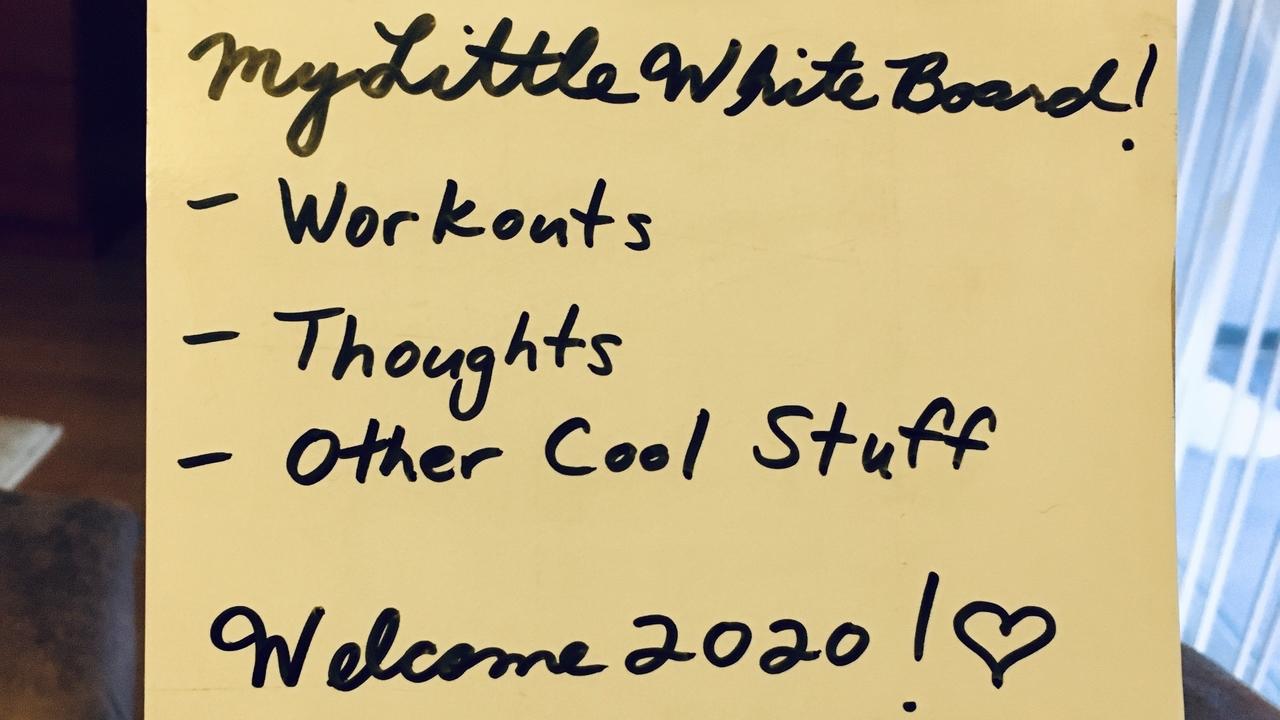 My Little White Board!
- Workouts
- Thoughts
- Other Cool Stuff
Welcome 2020!♡